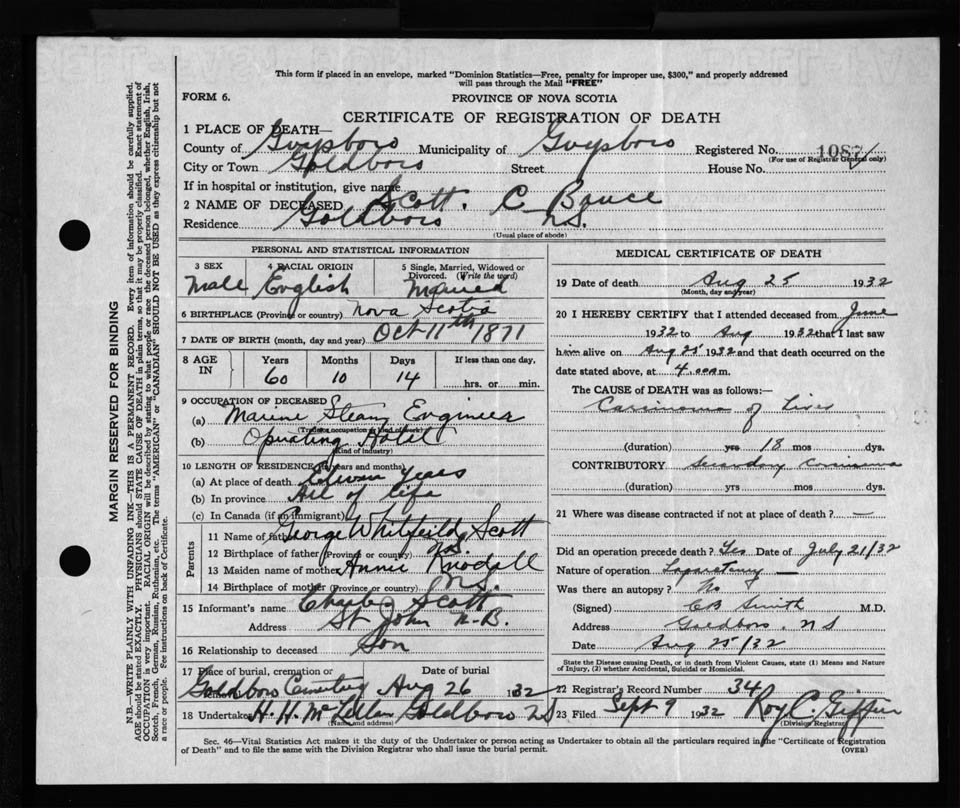 This form if placed in an envelope, marked "Dominion Statistics—Free, penalty for improper use, $300," and properly addressed
will pass through the Mail "FREE"
FORM 6. PROVINCE OF NOVA SCOTIA
CERTIFICATE OF REGISTRATION OF DEATH
1 PLACE OF DEATH—
County of Guysboro Municipality of Guysboro Registered No. 1087
(For use of Registrar General only)
City or Town Goldboro Street House No.
If in hospital or institution, give name
2 NAME OF DECEASED Scott. C Bruce
Residence Goldboro N.S.
(Usual place of abode)
PERSONAL AND STATISTICAL INFORMATION
3 SEX 4 RACIAL ORIGIN 5 Single, Married, Widowed or
Divorced. (Write the word)
Male English Married
6 BIRTHPLACE (Province or country) Nova Scotia
7 DATE OF BIRTH (month, day and year) Oct 11th 1871
8 AGE IN Years Months Days If less than one day,
60 10 14 hrs. or min.
9 OCCUPATION OF DECEASED
(a) Marine Steam Engineer
(b) Operating Hotel
(Kind of industry)
10 LENGTH OF RESIDENCE (in years and months)
(a) At place of death Eleven Years
(b) In province All of life
(c) In Canada (if an immigrant)
Parents
11 Name of father George Whitfeild Scott
12 Birthplace of father (Province or country) N.S.
13 Maiden name of mother Annie
14 Birthplace of mother (Province or country) N.S.
15 Informant's name Scott
Address St John N.B.
16 Relationship to deceased Son
17 Place of burial, cremation or removal Date of burial
Goldboro Cemetery Aug 26 1932
18 Undertaker H. H. McLellan Goldboro NS
(Name and address)
MEDICAL CERTIFICATE OF DEATH
19 Date of death Aug 25 1932
(Month, day and year)
20 I HEREBY CERTIFY that I attended deceased from June
1932 to Aug 1932 that I last saw
him alive on Aug 25 1932 and that death occurred on the
date stated above, at 4 a.m.
The CAUSE OF DEATH was as follows:—
Carcinoma of Liver
(duration) yrs 18 mos dys.
CONTRIBUTORY Secondary Carcinoma
(duration) yrs mos dys.
21 Where was disease contracted if not at place of death? —
Did an operation precede death? Yes Date of July 21/32
Nature of operation Laparotomy —
Was there an autopsy? No
(Signed) CB Smith M.D.
Address Goldboro, NS
Date Aug 25/32
State the Disease causing Death, or in death from Violent Causes, state (1) Means and Nature
of Injury, (2) whether Accidental, Suicidal or Homicidal.
22 Registrar's Record Number 34
23 Filed Sept 9 1932 Roy C. Giffin
(Division Registrar)
Sec. 46—Vital Statistics Act makes it the duty of the Undertaker or person acting as Undertaker to obtain all the particulars required in the "Certificate of Registration
of Death" and to file the same with the Division Registrar who shall issue the burial permit. (OVER)
MARGIN RESERVED FOR BINDING
N.B.—WRITE PLAINLY WITH UNFADING INK—THIS IS A PERMANENT RECORD. Every item of information should be carefully supplied.
AGE should be stated EXACTLY. PHYSICIANS should STATE CAUSE OF DEATH in plain terms, so that it may be properly classified. Exact statement of
OCCUPATION is very important. RACIAL ORIGIN will be described by stating to what people or race the deceased person belonged, whether English, Irish,
Scotch, French, German, Russian, Ruthenian, etc. The terms "AMERICAN" or "CANADIAN" SHOULD NOT BE USED as they express citizenship but not
a race or people. Fee instructions on back of Certificate.